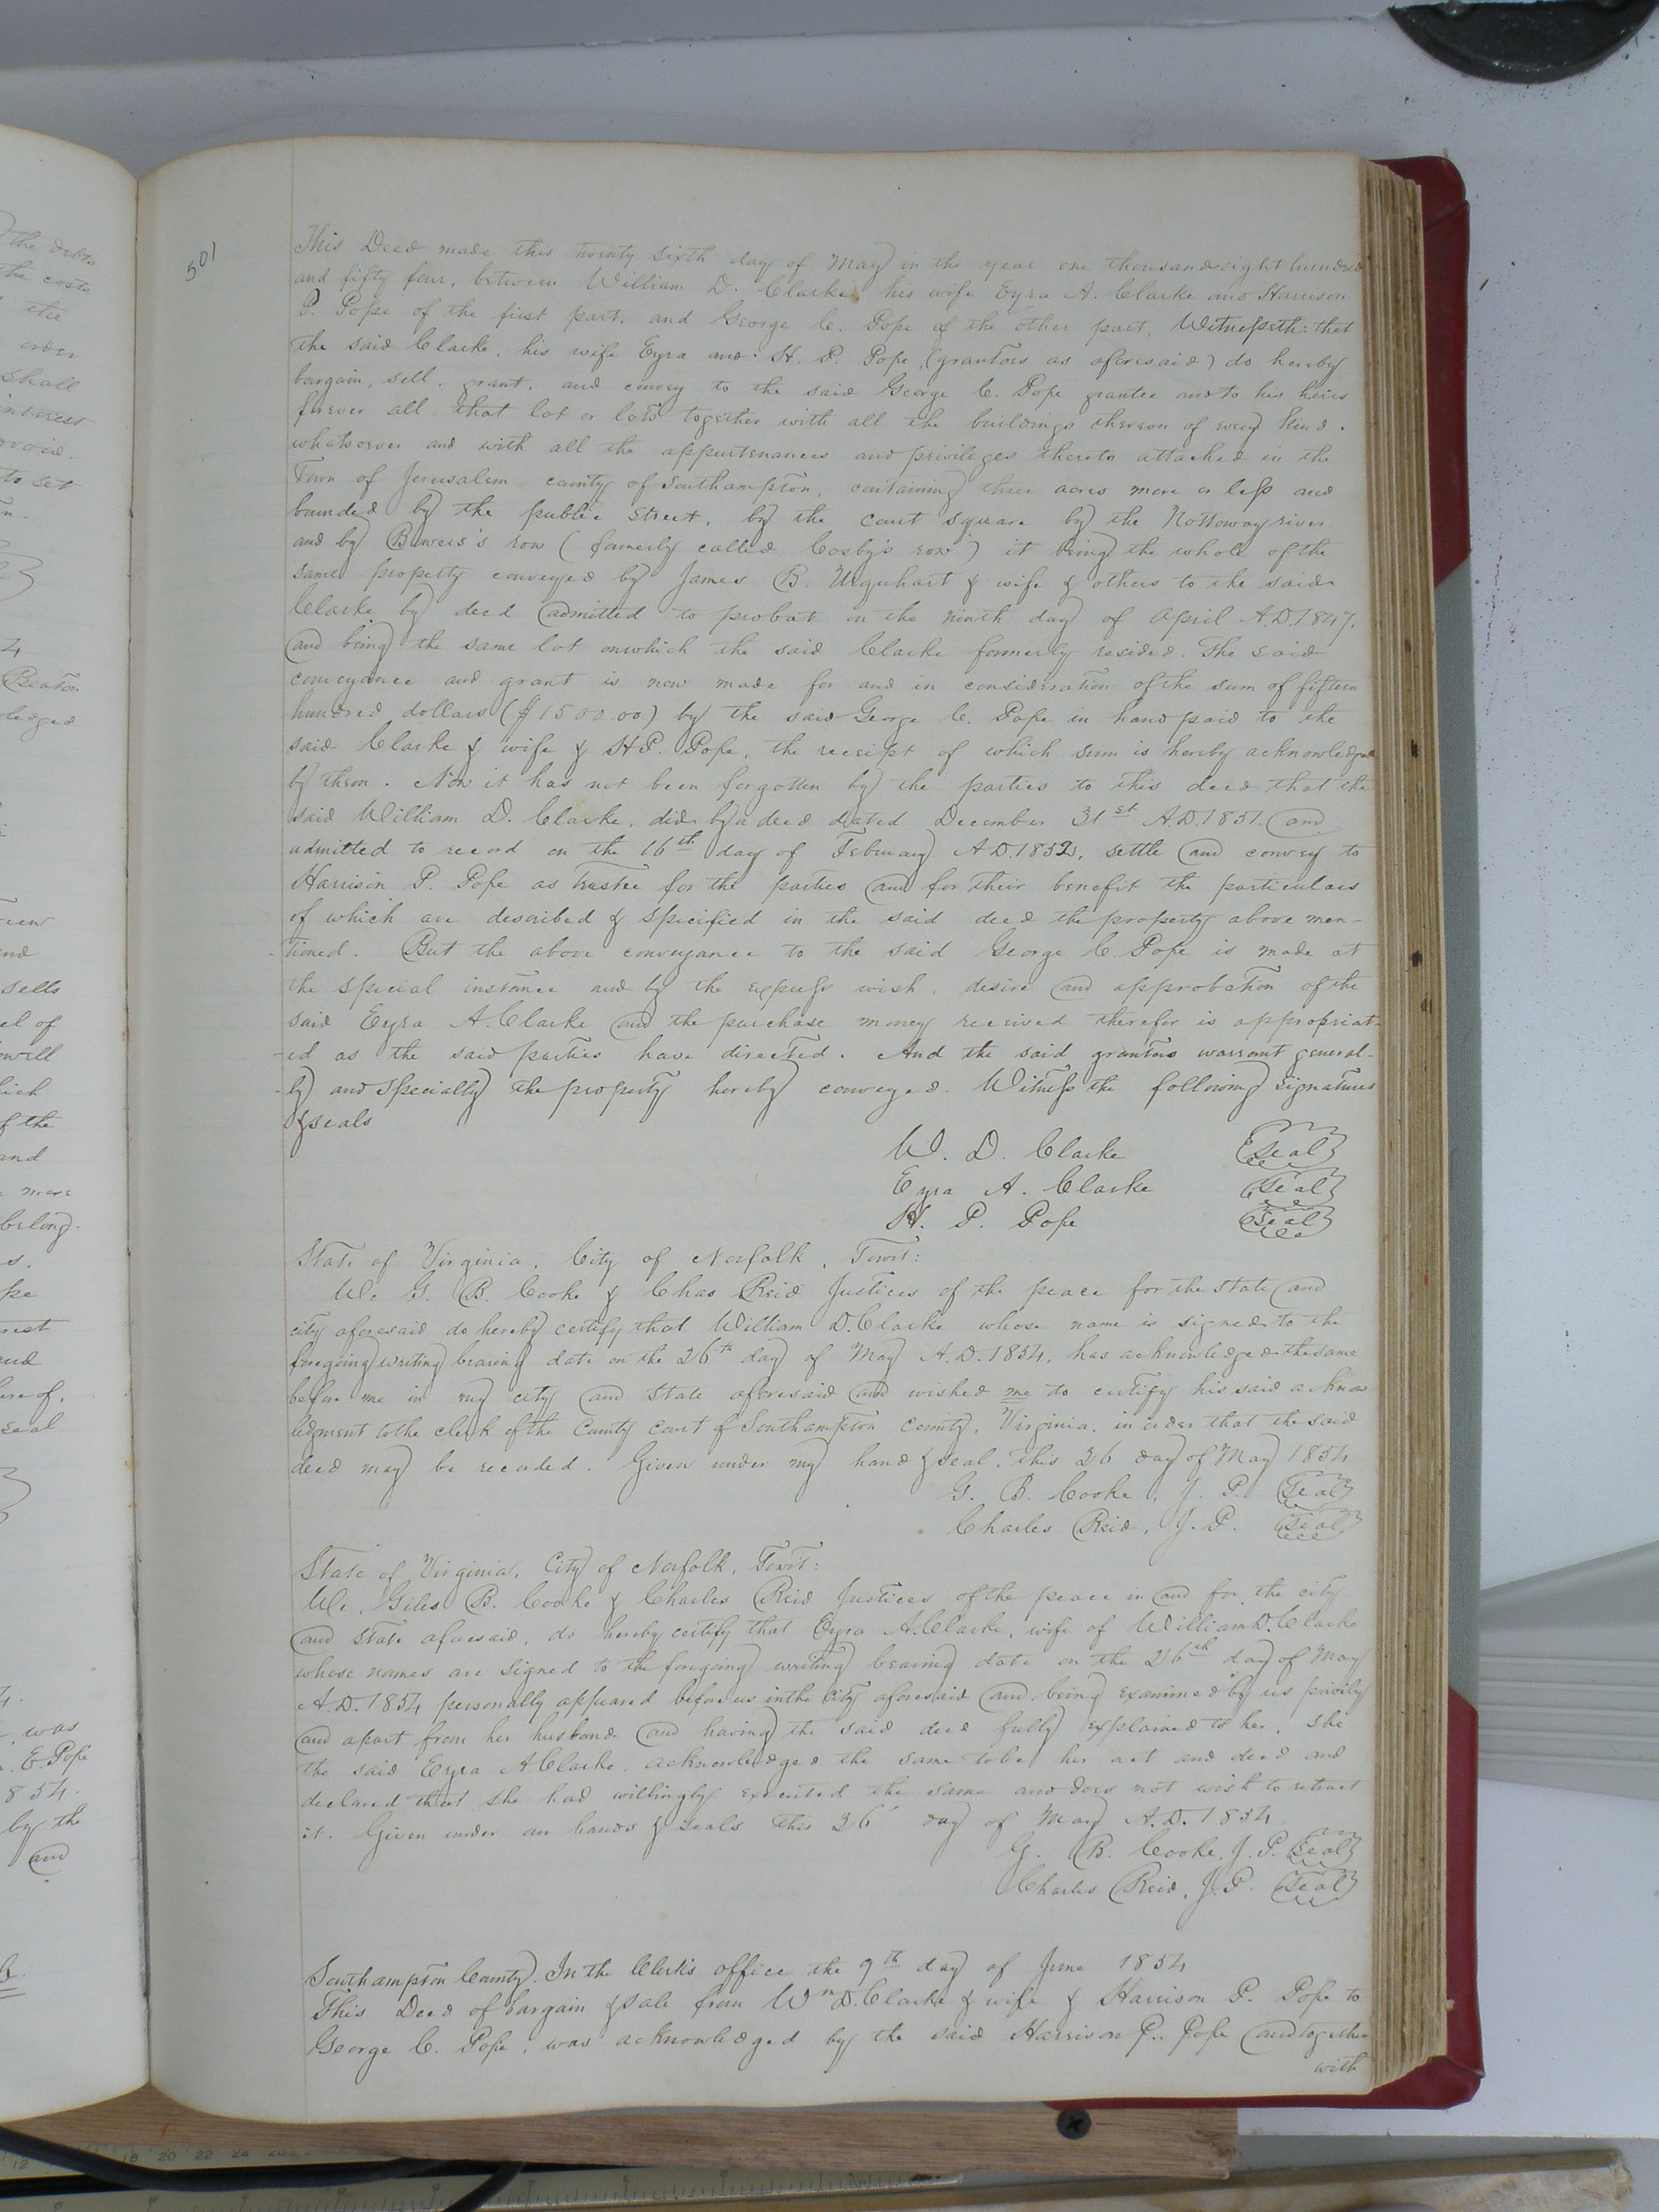 501
This Deed made this twenty sixth day of May in the year one thousand eight hundred
and fifty four, between William D. Clarke his wife Eyra A. Clarke and Harrison
P. Pope of the first part, and George C. Pope of the other part, Witnesseth: that
the said Clarke, his wife Eyra and H. P. Pope, (grantors as aforesaid) do hereby
bargain, sell, grant, and convey to the said George C. Pope grantee and to his heirs
forever all that lot or lots together with all the buildings thereon of every kind
whatsoever and with all the appurtenances and privileges thereto attached in the
Town of Jerusalem county of Southampton, containing three acres more or less and
bounded by the public street, by the court square by the Nottoway river
and by Bowers's row (formerly called Cosby's row) it being the whole of the
same property conveyed by James B. Urquhart & wife & others to the said
Clarke by deed admitted to probat on the ninth day of April A.D. 1847.
and being the same lot on which the said Clarke formerly resided. The said
conveyance and grant is now made for and in consideration of the sum of fifteen
hundred dollars ($1500.00) by the said George C. Pope in hand paid to the
said Clarke & wife & H.P. Pope, the receipt of which sum is hereby acknowledged
by them. Now it has not been forgotten by the parties to this deed that the
said William D. Clarke, did by a deed dated December 31st A.D. 1851. and
admitted to record on the 16th day of February A.D. 1852, settle and convey to
Harrison P. Pope as trustee for the parties and for their benefit the particulars
of which are described & specified in the said deed the property above men-
-tioned. But the above conveyance to the said George C. Pope is made at
the special instance and by the express wish, desire and approbation of the
said Eyra A. Clarke and the purchase money received therefor is appropriat-
-ed as the said parties have directed. And the said grantors warrant general-
-ly and specially the property hereby conveyed. Witness the following signatures
& seals
W. D. Clarke Seal
Eyra A. Clarke Seal
H. P. Pope Seal
State of Virginia, City of Norfolk, Towit:
We G. B. Cooke & Chas Reid Justices of the peace for the state and
city aforesaid do hereby certify that William D. Clarke whose name is signed to the
foregoing writing bearing date on the 26th day of May A.D. 1854, has acknowledged the same
before me in my city and State aforesaid and wished me to certify his said acknow-
ledgment to the clerk of the County court of Southampton County, Virginia, in order that the said
deed may be recorded. Given under my hand & seal, this 26 day of May 1854
G. B. Cooke, J. P. Seal
Charles Reid, J. P. Seal
State of Virginia, City of Norfolk, Towit:
We, Giles B. Cooke & Charles Reid Justices of the peace in and for the city
and State aforesaid, do hereby certify that Eyra A. Clarke, wife of William D. Clarke
whose names are signed to the foregoing writing bearing date on the 26th day of May
A.D. 1854 personally appeared before us in the City aforesaid and being examined by us privily
and apart from her husband and having the said deed fully explained to her, she
the said Eyra A. Clarke, acknowledged the same to be her act and deed and
declared that she had willingly executed the same and does not wish to retract
it. Given under our hands & seals this 26 day of May A.D. 1854
G. B. Cooke, J. P. Seal
Charles Reid, J. P. Seal
Southampton County. In the Clerk's office the 9th day of June 1854
This Deed of bargain & sale from Wm D. Clarke & wife & Harrison P. Pope to
George C. Pope, was acknowledged by the said Harrison P. Pope and together
with